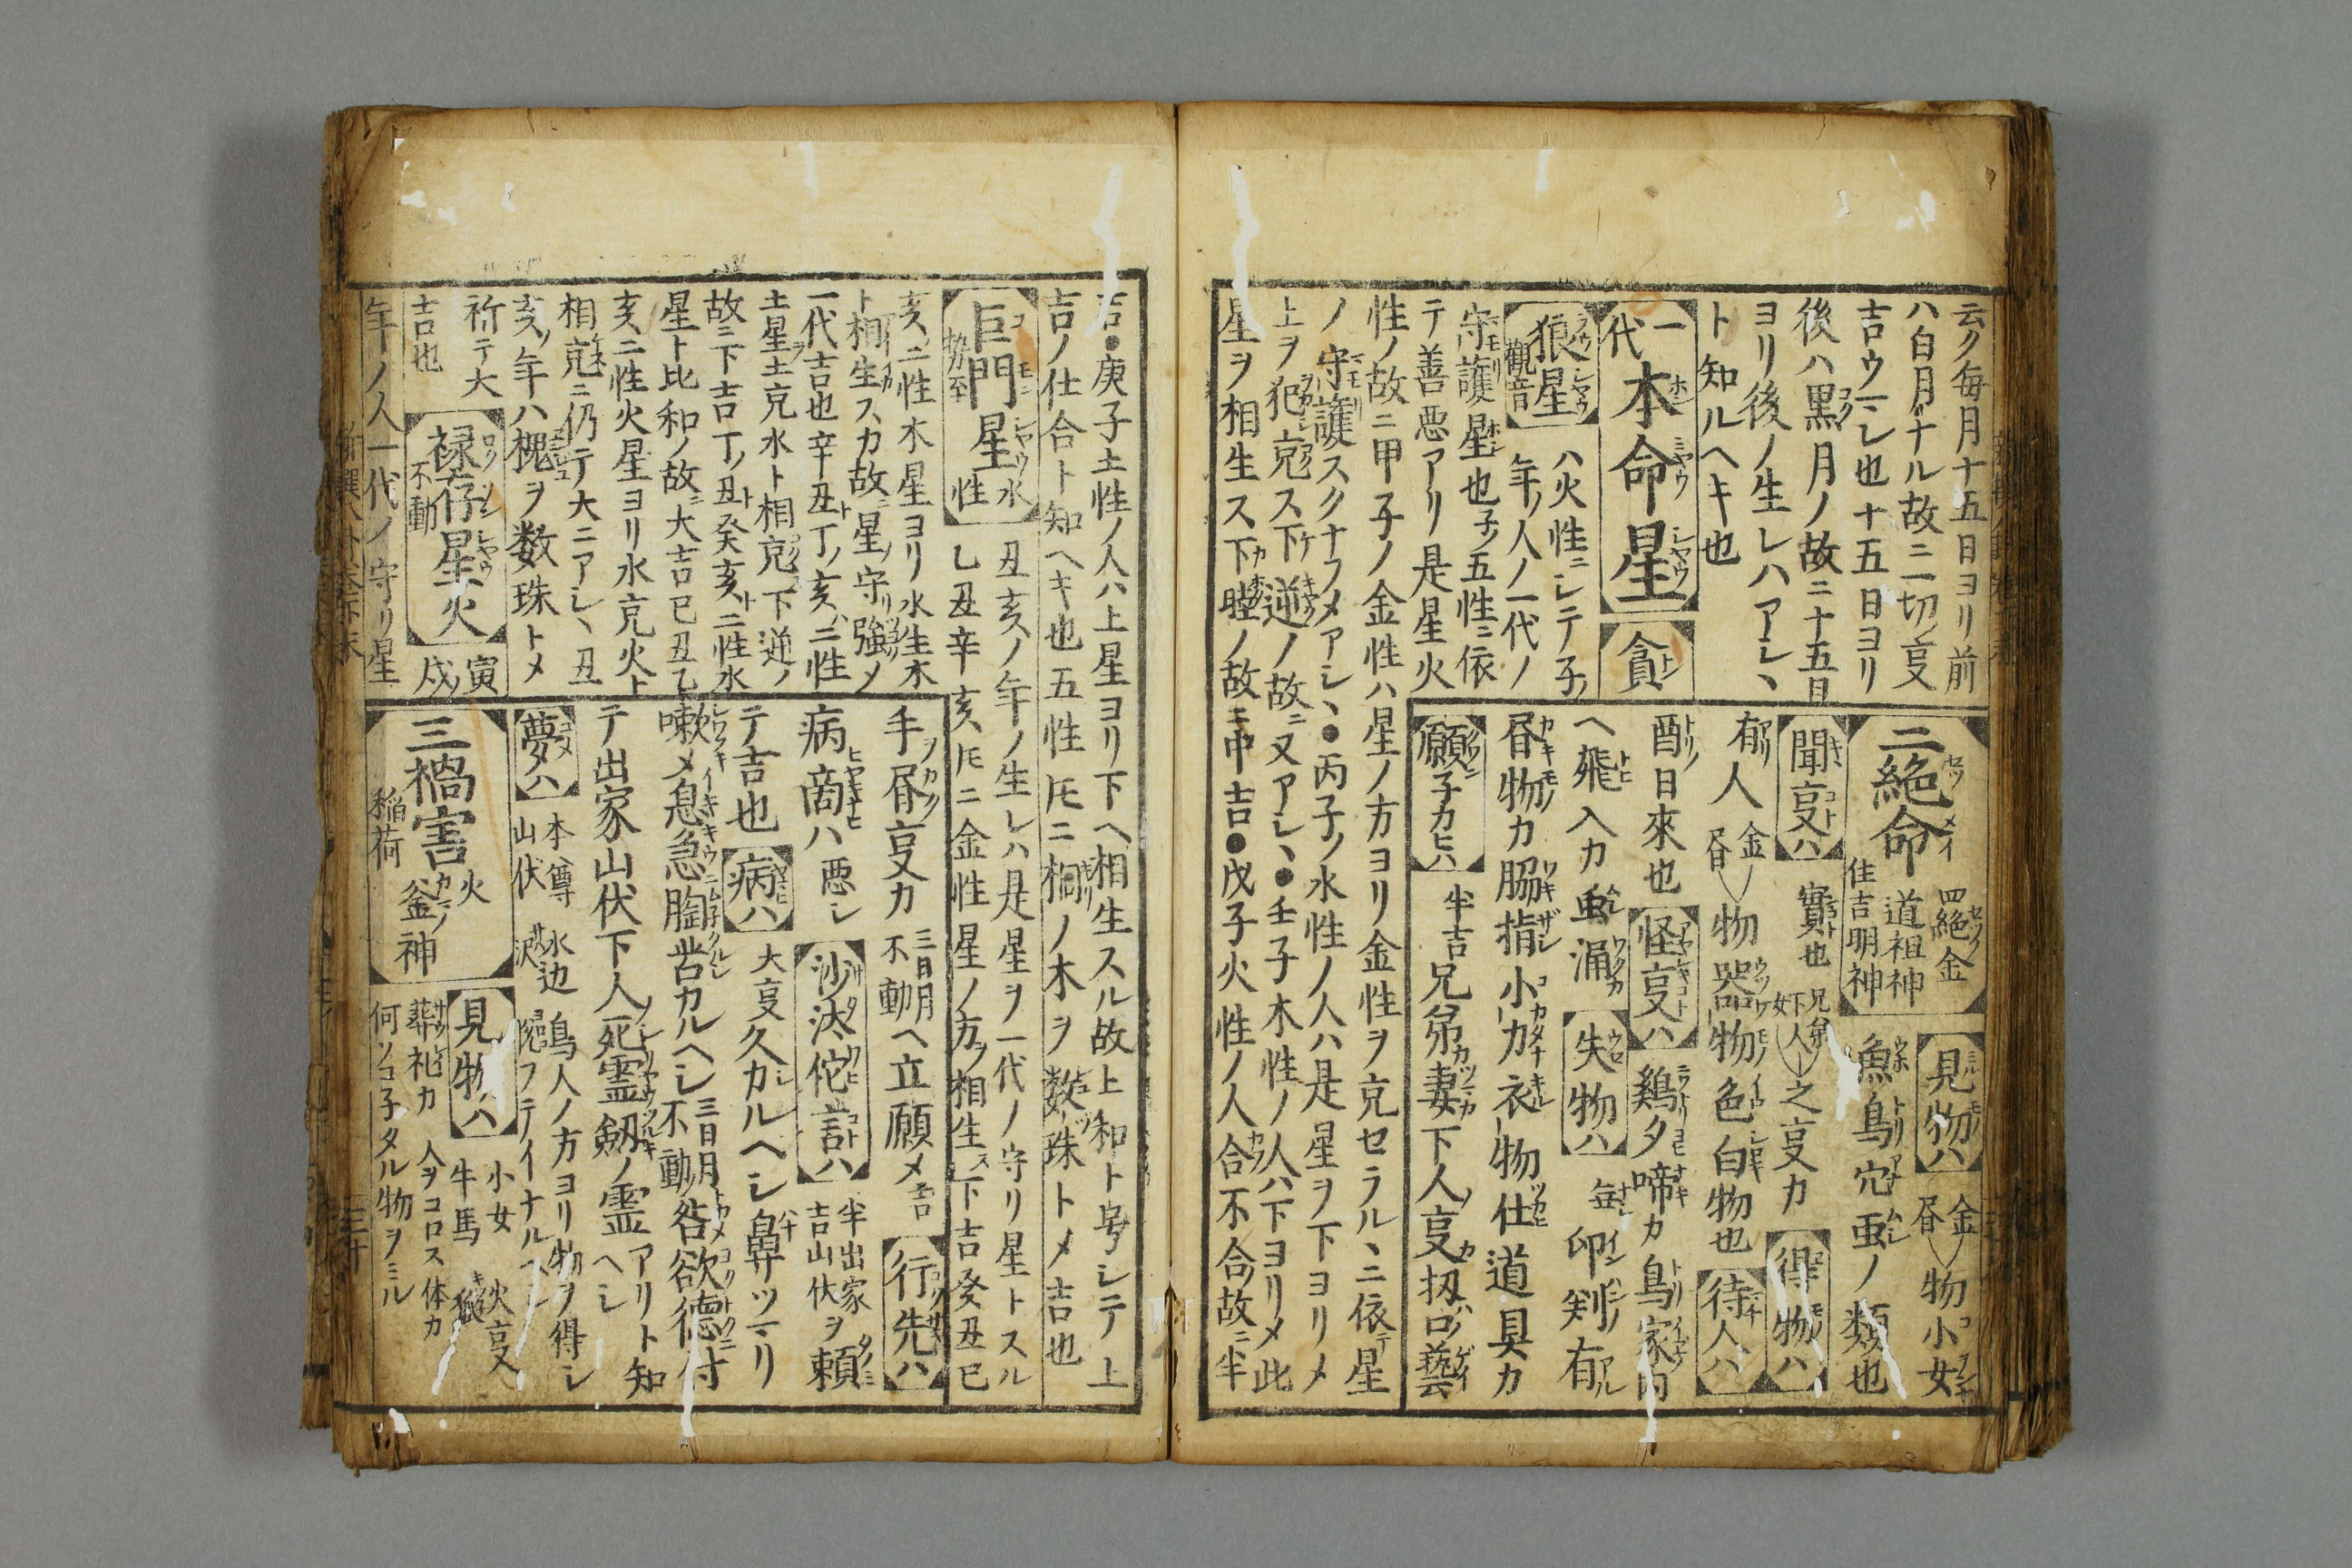 云ク毎月十五日ヨリ前
ハ白月ナル故ニ一切ノ㕝
吉ウマシ也十五日ヨリ
後ハ黒月ノ故ニ十五日
ヨリ後ノ生レハアシヽ
ト知ルヘキ也
一代本命星
貪狼星 觀音
ハ火性ニシテ子ノ
年ノ人ノ一代ノ
守護星也子ノ五性ニ依
テ善悪アリ是星火
性ノ故ニ甲子ノ金性ハ星ノ方ヨリ金性ヲ克セラルヽニ依テ星
ノ守護スクナフメアシヽ●丙子ノ水性ノ人ハ是星ヲ下ヨリメ
上ヲ犯克ス下逆ノ故ニ又アシヽ●壬子木性ノ人ハ下ヨリメ此
星ヲ相生ス下 ノ故ニ中吉●戊子火性ノ人合不合故ニ半
二絶命 四絶金 道祖神 住吉明神
見物ハ 金 物小女
魚鳥穴虫ノ類也
聞㕝ハ 實也 兄弟 下人 女 之㕝カ
得物ハ
有人 金 物器物色白物也
待人ハ
酉日來也
怪㕝ハ 鷄夕啼カ鳥家内
ヘ飛入カ虫涌
失物ハ 印判有
物カ脇指小カ衣物仕道具カ
願子カヒハ 半吉兄弟妻下人㕝扨口藝
吉●庚子土性ノ人ハ上星ヨリ下ヘ相生スル故上和ト号シテ上
吉ノ仕合ト知ヘキ也五性ニ桐ノ木ヲ数珠トメ吉也
巨門星 水性 勢至
丑亥ノ年ノ生レハ是星ヲ一代ノ守リ星トスル
乙丑辛亥ニ金性星ノ方ヲ相生ス下吉癸丑己
亥ニ性木星ヨリ水生木
ト相生スカ故ニ星ノ守リ強メ
一代吉也辛丑丁ノ亥ハ二性
土星土克水ト相克ス下逆ノ
故ニ下吉丁ノ丑ト癸亥ト二性水
星ト比和ノ故ニ大吉已丑乙
亥ニ性火星ヨリ水克火ト
相克ニ仍テ大ニアシヽ丑
亥ノ年ハ槐ヲ数珠トメ
祈テ大
吉也
禄存星火 不動
寅戌ノ
年ノ人一代ノ守リ星
㕝カ 三日月 不動 ヘ立願メ吉
行先ハ
病 ハ悪シ
沙汰侘言ハ 半吉 出家 山伏 ヲ頼
テ吉也
病ハ 大㕝久カルヘシ鼻ツマリ
嗽メ息急胸苦カルヘシ 三日月 不動 咎欲徳付
テ出家山伏下人死霊剱ノ霊アリト知ヘシ
夢ハ 本尊 山伏 水辺 沢 鳥人ノ方ヨリ物ヲ得シ
三禍害 火 釜ノ神 稲荷
見物ハ 小女 牛馬 火㕝
葬礼カ 人ヲコロス体カ
何ソコ子タル物ヲミル